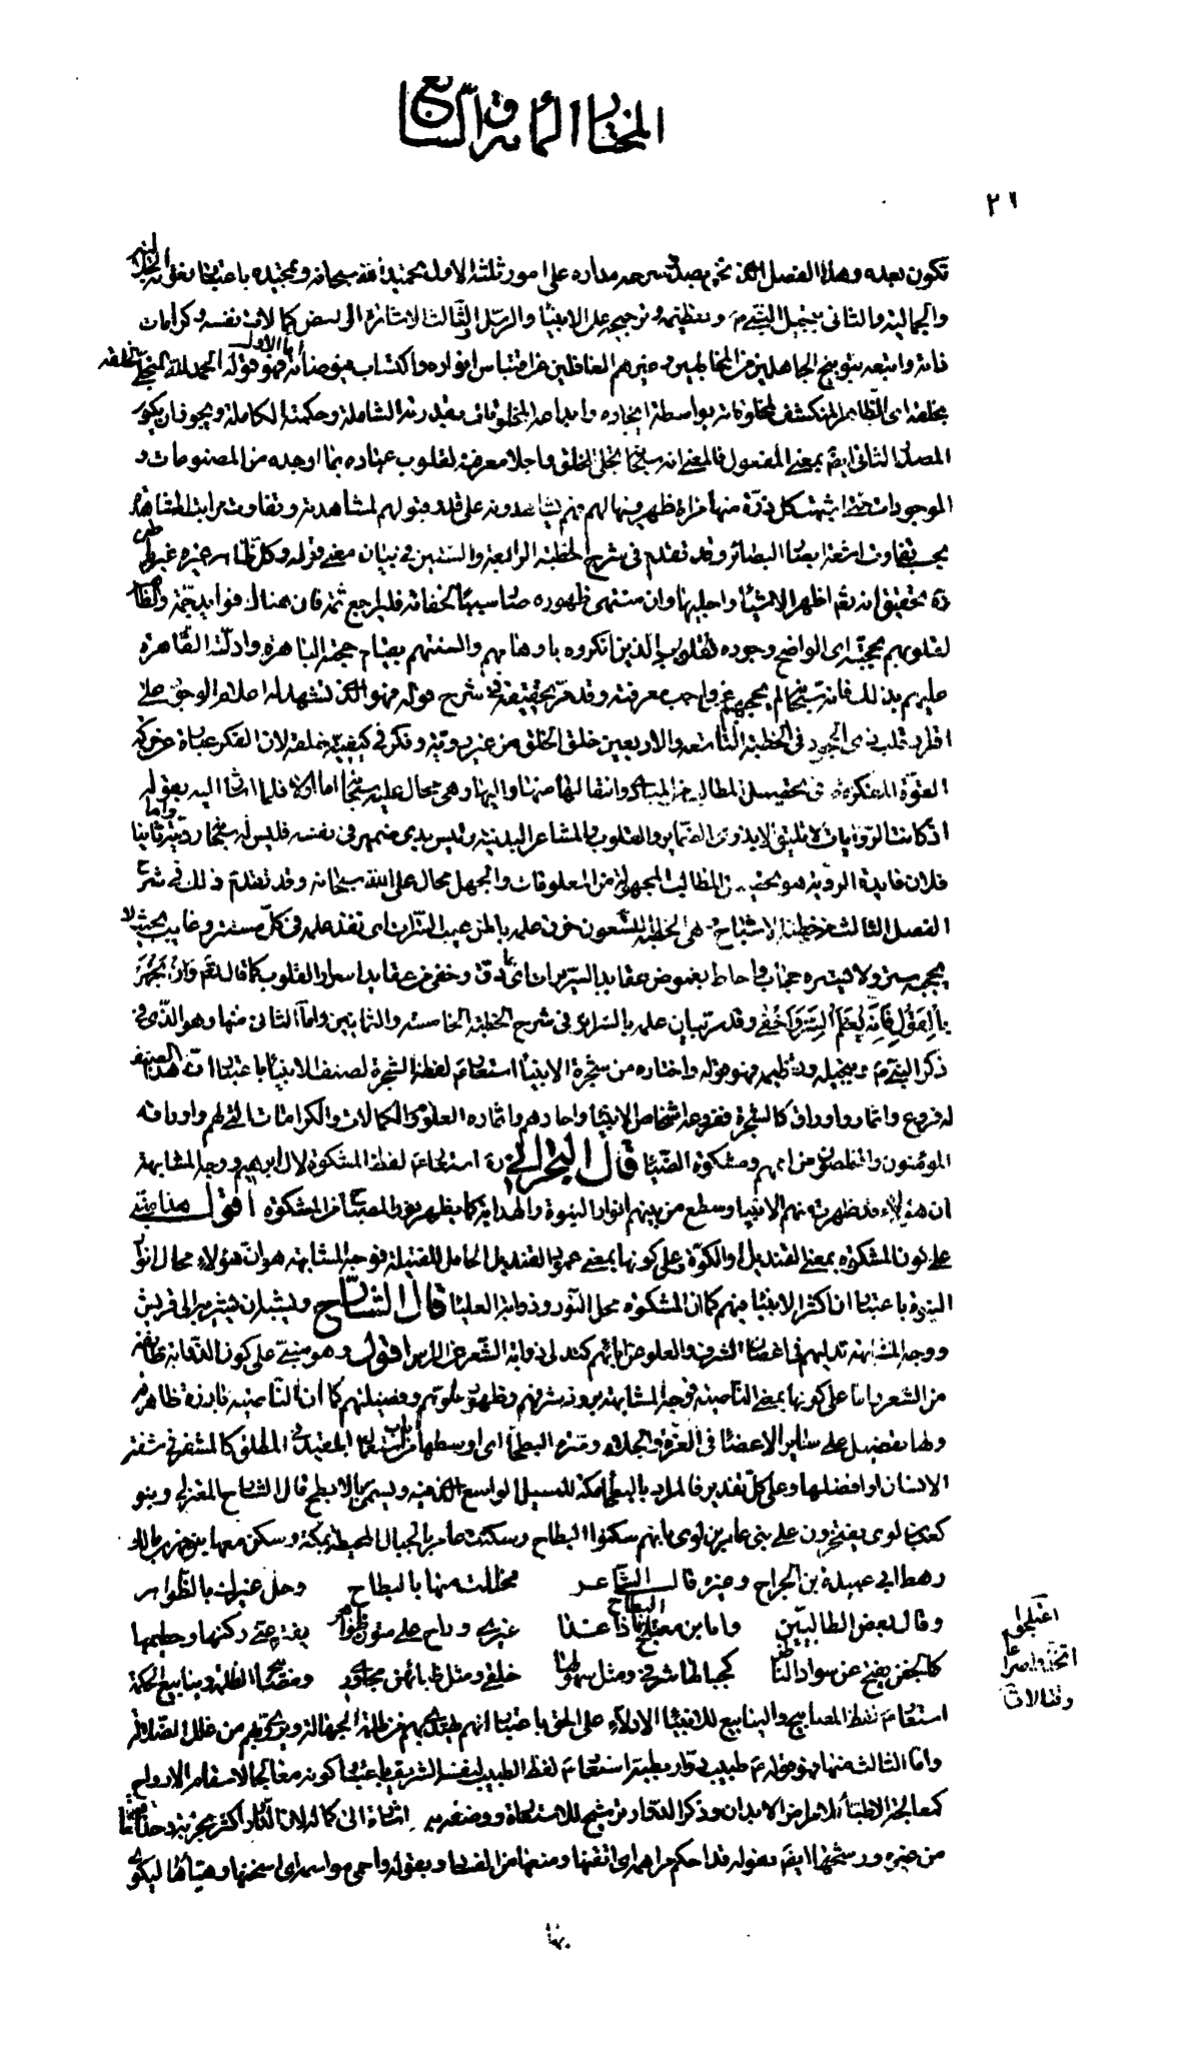 المختار المائة والسابع
٢٦
تكون بعده وهذا الفصل الذي نحن بصدد شرحه مداره على امور ثلثة الاول تحميد الله سبحانه وتمجيده باعتبار نعوته الجلالية
والجمالية والثاني تبجيل النبي ص وتعظيمه وترجيحه على الانبيا والرسل والثالث الاشارة الى بعض كمالات نفسه وكرامات
ذاته واتبعه بتوبيخ الجاهلين من المخاطبين وغيرهم الغافلين عن اقتباس انواره واكتساب فيوضاته اما الاول فهو قوله الحمد لله المتجلي لخلقه
بخلقه اى الظاهر المنكشف لمخلوقاته بواسطة ايجاده وابداعه المخلوقات بقدرته الشاملة وحكمته الكاملة ويجوز ان يكون
المصدر الثاني ايضا بمعنى المفعول فالمعنى انه سبحانه تجلى للخلق واجلا معرفته لقلوب عباده بما اوجده من المصنوعات و
الموجودات حتى اشبهت كل ذرة منها مرآة ظهر فيها لهم فهم يشاهدونه على قدر قبولهم لمشاهدته وتفاوت مراتب المشاهدة
بحسب تفاوت اشعة ابصار البصائر وقد تقدم في شرح الخطبة الرابعة والستين في بيان معنى قوله وكل ظاهر غيره غير باطن
تحقيق انه تعالى اظهر الاشياء واجليها وان منتهى ظهوره صار سببا لخفائه فليراجع ثمة فان هناك فوايد جمة والظاهر
لقلوبهم بحجته اى الواضح وجوده لقلوب الذين انكروه باوهامهم والسنتهم بقيام حججه الباهرة وادلته القاهرة
عليهم بذلك فانه سبحانه لم يحجبهم عن واجب معرفته وقد مر تحقيقه في شرح قوله فهو الذي تشهد له اعلام الوجود على
اقرار قلب ذي الجحود في الخطبة التاسعة والاربعين خلق الخلق من غير روية وفكر في كيفية خلقه لان الفكر عبارة عن حركة
القوة المفكرة في تحصيل المطالب من المبادي وانتقالها منها واليها وهي محال عليه سبحانه اما اولا فلما اشار اليه بقوله
اذ كانت الرويات لا تليق الا بذوى الضماير والقلوب والمشاعر البدنية وليس بذي ضمير في نفسه فليس له سبحانه روية واما ثانيا
فلان فايدة الروية هو تحصيل المطالب المجهولة من المعلومات والجهل محال على الله سبحانه وقد تقدم ذلك في شرح
الفصل الثالث من خطبة الاشباح وهي الخطبة التسعون خرق علمه باطن غيب السترات اى نفذ علمه في كل مستتر وغايب بحيث لا
يحجبه ستر ولا يستره حجاب واحاط بغموض عقايد السريرات اى ما دق وخفي من عقايد اسرار القلوب كما قال تعالى وَان تَجْهَرْ
بالقولِ فانّه يَعلم السرّ واَخفى وقد مر بيان علمه بالسراير في شرح الخطبة الخامسة والثمانين واما الثاني منها وهو الذي في
ذكر النبي ص وتبجيله وتعظيمه فهو قوله واختاره من شجرة الانبيا استعار لفظ الشجرة لصنف الانبيا باعتبار ان هذا الصنف
له فروع واثمار واوراق كالشجرة ففروعه اشخاص الانبيا وآحادهم واثماره العلوم والكمالات والكرامات التي لهم واوراقه
المؤمنون والمخلصون من اممهم ومشكوة الضياء قال البحراني ره استعار لفظ المشكوة لآل ابراهيم ووجه المشابهة
ان هؤلاء قد ظهرت منهم الانبيا وسطع من بينهم انوار النبوة والهداية كما يظهر نور المصباح من المشكوة اقول هذا مبني
على كون المشكوة بمعنى القنديل او الكوة وعلى كونها بمعنى عمود القنديل الحامل للفتيلة فوجه المشابهة هو ان هؤلاء محال انوار
النبوة باعتبار ان اكثر الانبيا منهم كما ان المشكوة محل النور وذؤابة العلياء قال الشارح ويشبه ان يشير به الى قريش
ووجه المشابهة تدليهم في اغصان الشرف والعلو عن آبائهم كتدلي ذؤابة الشعر عن الراس اقول وهو مبني على كون الذؤابة
من الشعر واما على كونها بمعنى الناصية فوجه المشابهة بروز شرفهم وظهور علوهم وفضيلتهم كما ان الناصية بارزة ظاهرة
ولها تفضيل على ساير الاعضا في العزة والجلالة وسرة البطحاء اى اوسطها من باب استعمال المقيد في المطلق كالمشفر في شفة
الانسان او افضلها وعلى كل تقدير فالمراد بالبطحاء مكة للمسيل الواسع الذي فيه ويسمى بالابطح قال الشارح المعتزلي وبنو
كعب بن لوى يفتخرون على بني عامر بن لوى بانهم سكنوا البطاح وسكنت عامر بالجبال المحيطة بمكة وسكن معها بنو فهر بن مالك
رهط ابي عبيدة بن الجراح وغيره قال الشاعر فحللت منها بالبطاح وحل غيرك بالظواهر
وقال بعض الطالبيين واما بن معتلج البطاح اذا غدا غيري وراح على متون ظواهر يفتر عنى ركنها وحطيمها
كالجفن يفتح عن سواد الناظر كجبالها شرفي ومثل سهولها خلقي ومثل ظبائهن مجاوري ومصابيح الظلمة وينابيع الحكمة
استعار لفظ المصابيح والينابيع للانبيا الادلاء على الحق باعتبار انهم يهتدى بهم من ظلمة الجهالة ويروى بهم من غلل الضلالة
واما الثالث منها فهو قوله طبيب دوار بطبه استعار لفظ الطبيب لنفسه الشريفة باعتبار كونه معالجا لاسقام الارواح
كمعالجة الاطباء لامراض الابدان وذكر الدوار ترشيح للاستعارة ووصفه به اشارة الى كماله لان الدوار اكثر تجربة وحذاقة
من غيره ورشحها ايضا بقوله قد احكم مراهمه اى اتقنها ومنعها من الفساد وبقوله واحمى مواسمه اى اسخنها وهيأها ليكون
اعتلجوا
اتخذوا صراعا
وقتالا ق
بها